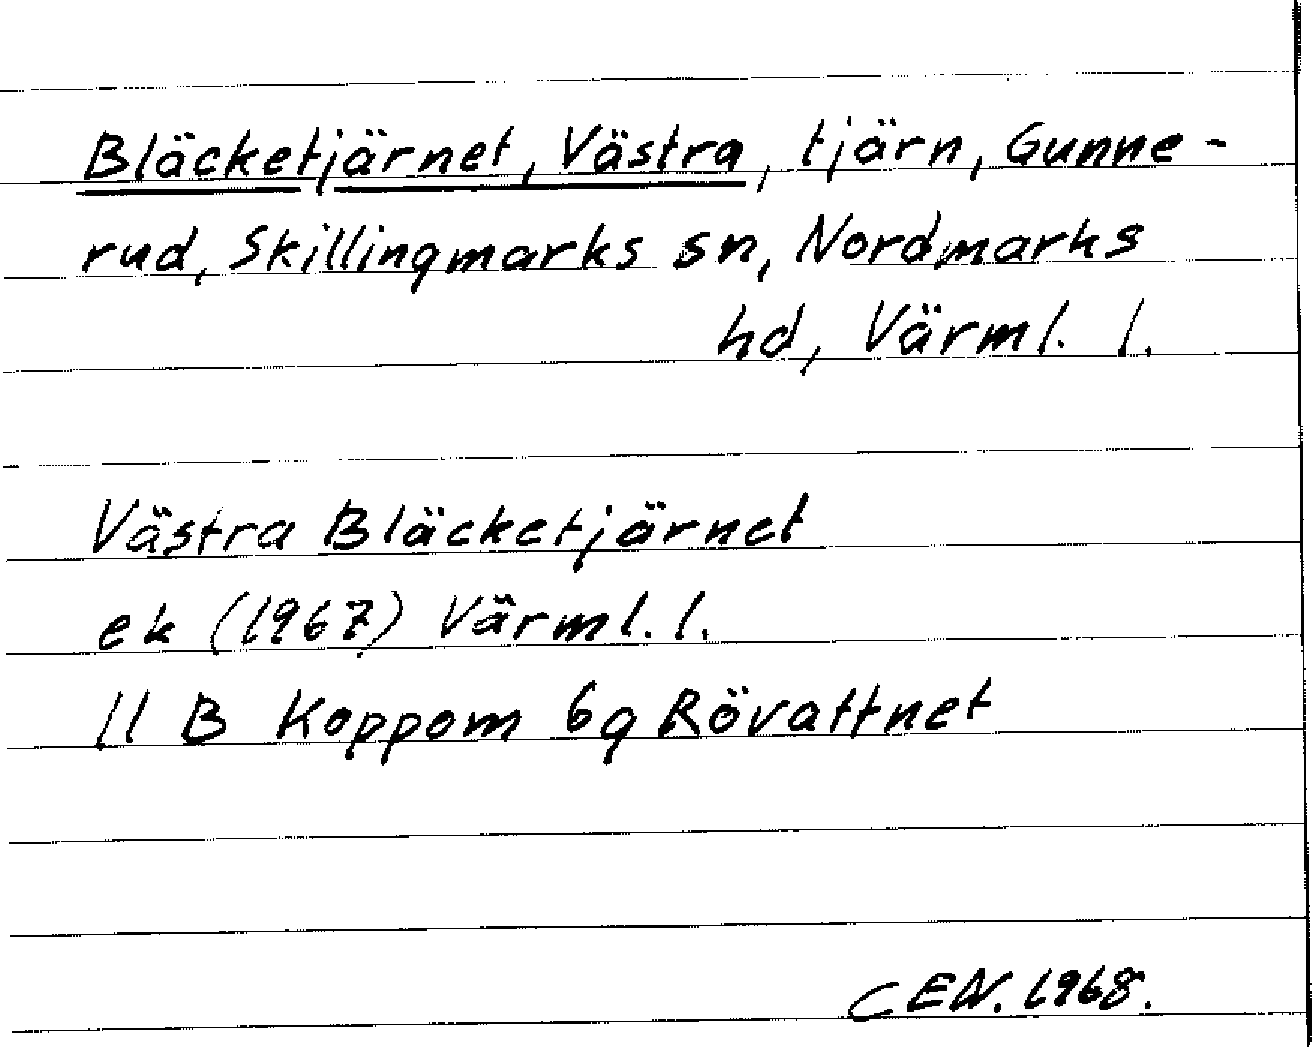 Bläcketjärnet, Västra, tjärn, Gunne-
rud, Skillingmarks sn, Nordmarks
hd, Värml. l.
Västra Bläcketjärnet
ek (1967) Värml. l.
11 B Koppom 6g Rövattnet
CEN. 1968.